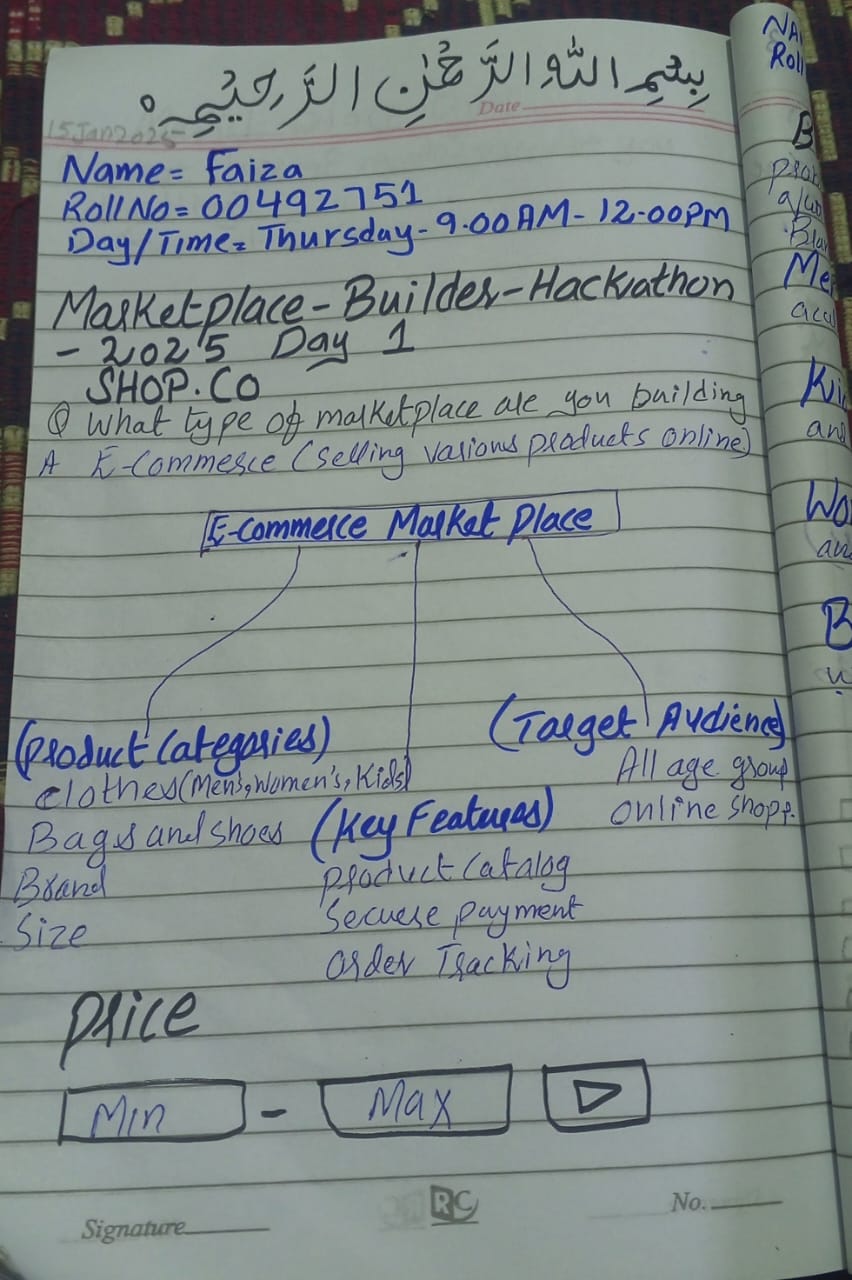 بِسْمِ اللّٰهِ الرَّحْمٰنِ الرَّحِيْمِ
Date
15 Jan 2025
Name = Faiza
Roll No = 00492751
Day/Time = Thursday - 9.00 AM - 12.00 PM
Marketplace - Builder - Hackathon
- 2025 Day 1
SHOP.CO
Q What type of marketplace are you building
A E-Commerce (Selling various products online)
E-commerce Market Place
(Product Categories)
Clothes (Men's, Women's, Kids)
Bags and shoes
Brand
Size
(Key Features)
Product Catalog
Secuere payment
Order Tracking
(Target Audience)
All age group
Online Shopp.
Price
Min - Max
Signature
RC
No.
NA
Roll
B
Me
Ki
and
Wo
an
B